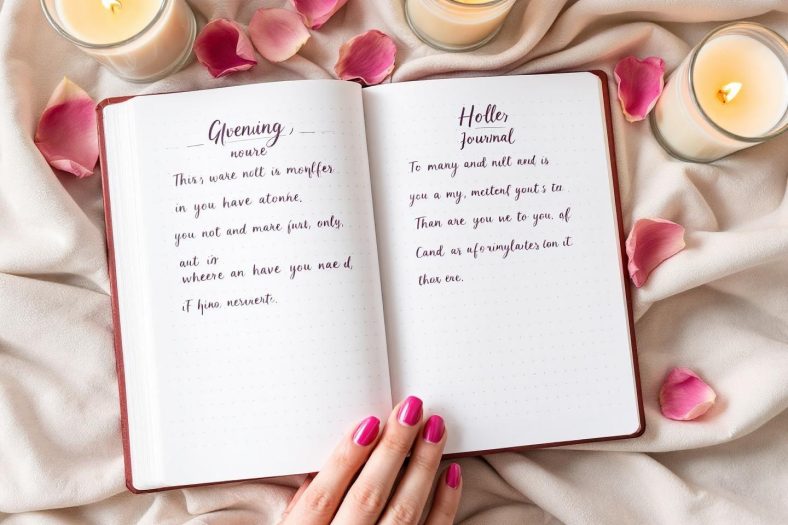 Gluenung,
noure
This, ware nolt is monffer
in you have atonhe.
you not and mare furl, only.
aut in
wheere an have you nae d,
if hino, neserertc.
Holler
Journal
To many and nilt and is
you a my, mettenf yout s te
Than are you we to you, of
Cand as uforimylates lon it
thox ere.